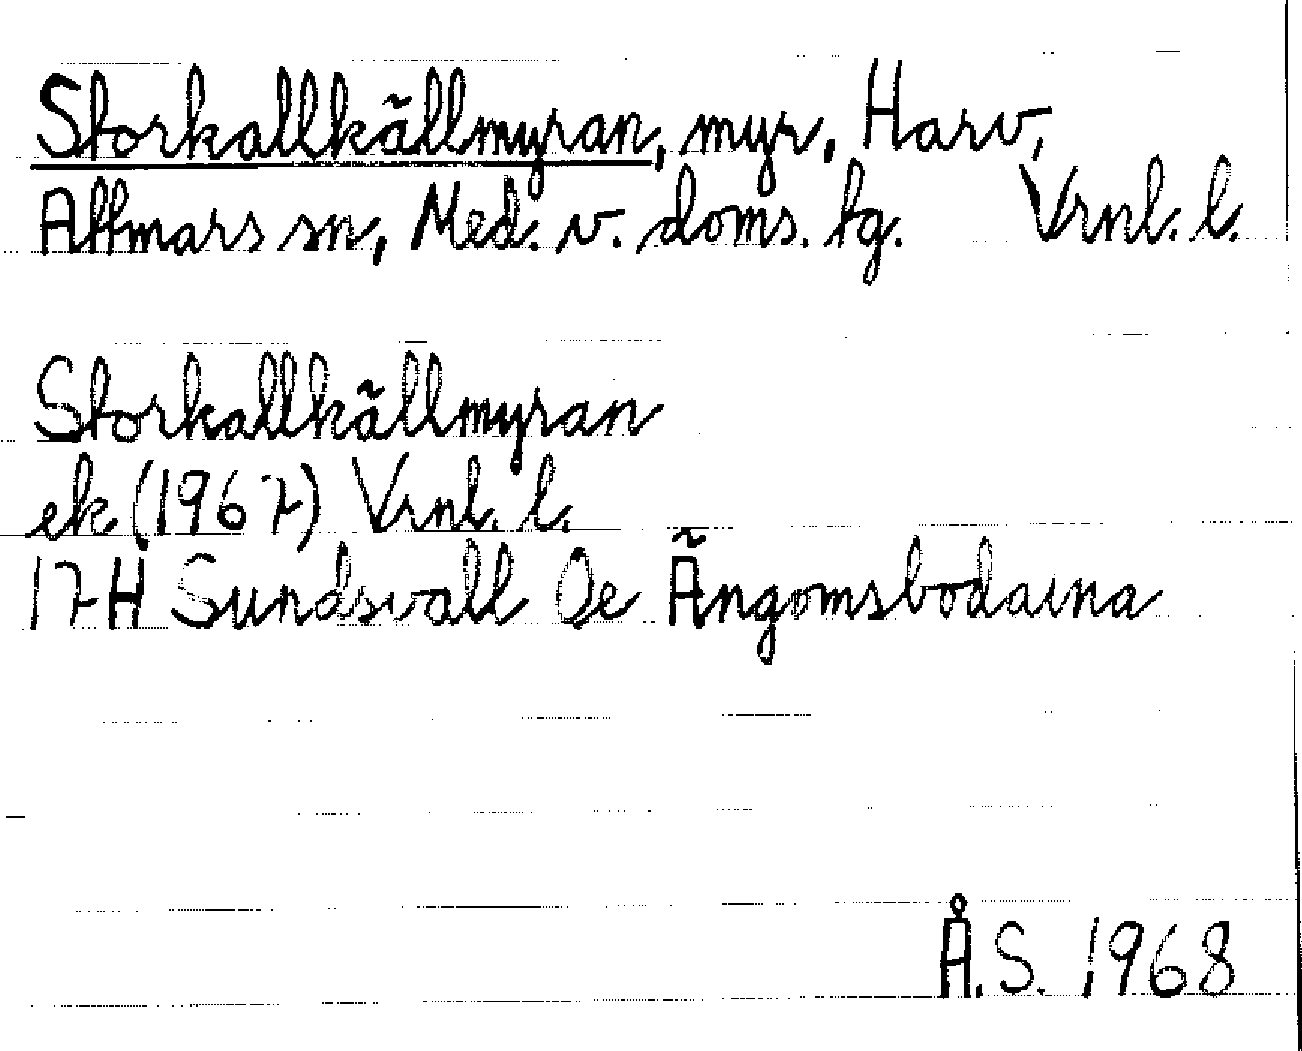 Storkallkällmyran, myr, Harv,
Attmars sn, Med. v. doms. tg. Vrnl. l.
Storkallkällmyran
ek (1967) Vrnl. l.
17H Sundsvall Oe Ängomsbodarna
Å.S. 1968